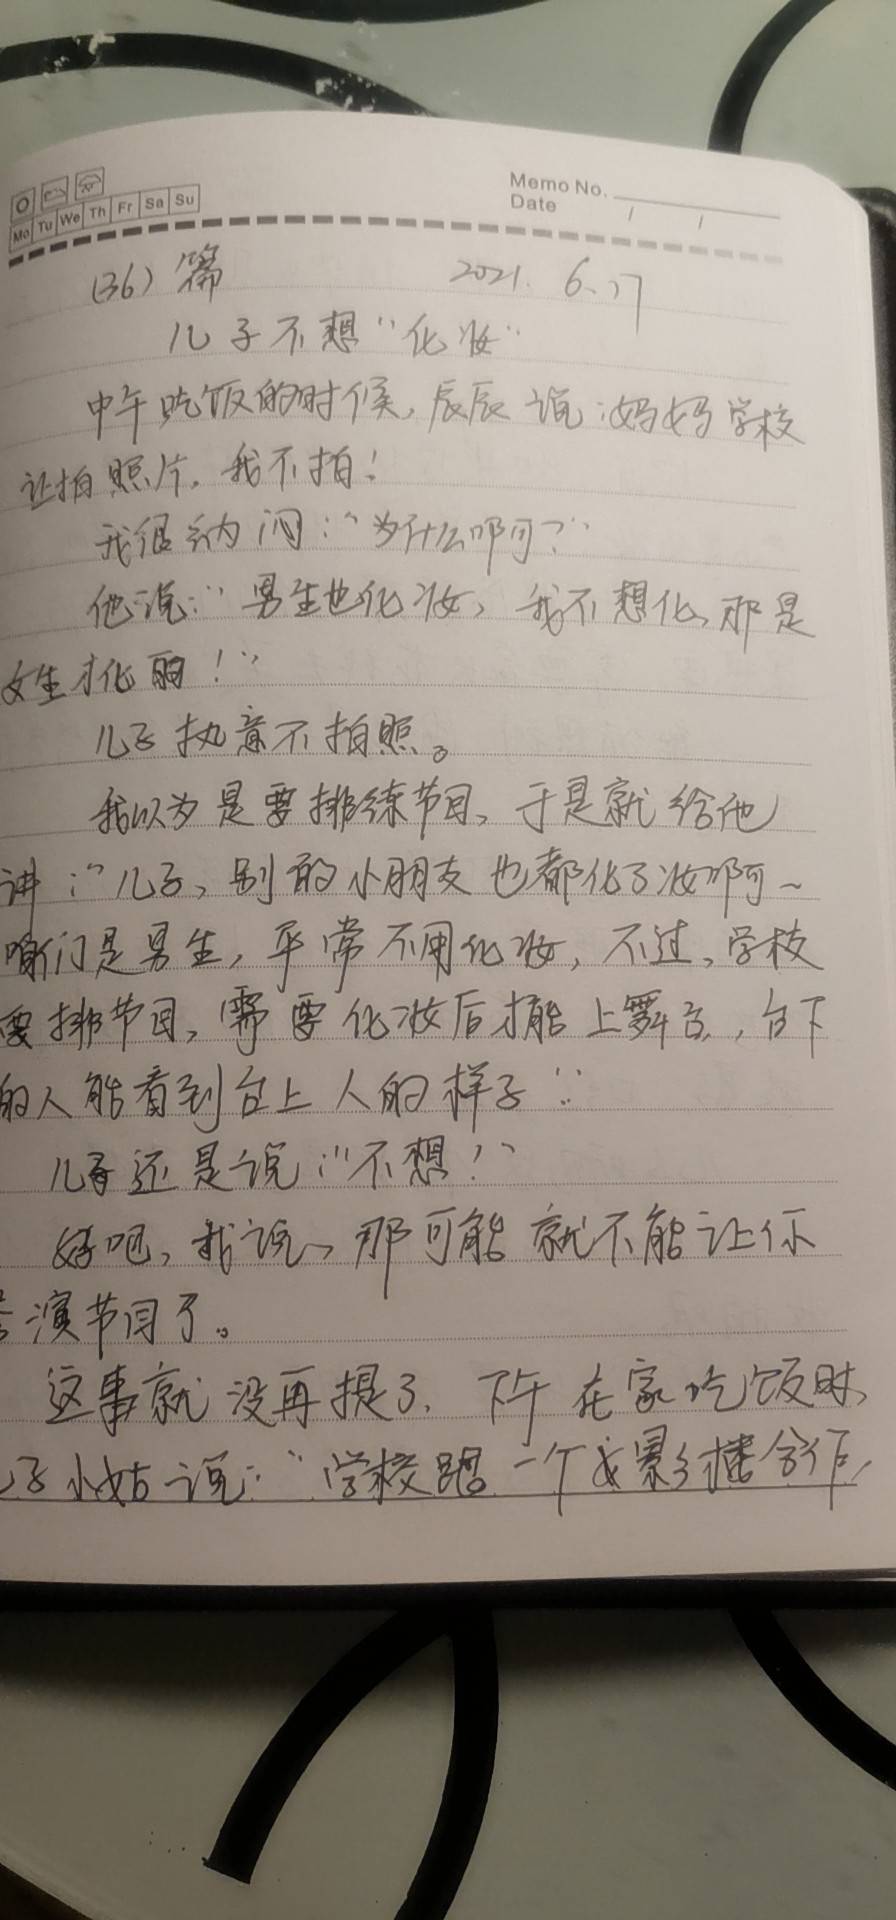 Memo No.
Date / /
Mo Tu We Th Fr Sa Su
(36)篇 2021. 6.17
儿子不想“化妆”
中午吃饭的时候,辰辰说:妈妈学校
让拍照片,我不拍!
我很纳闷:“为什么啊?”
他说:“男生也化妆,我不想化,那是
女生才化的!”
儿子执意不拍照。
我以为是要排练节目,于是就给他
讲:“儿子,别的小朋友也都化了妆啊~
咱们是男生,平常不用化妆,不过,学校
要排节目,需要化妆后才能上舞台,台下
的人能看到台上人的样子”
儿子还是说:“不想!”
好吧,我说,那可能就不能让你
演节目了。
这事就没再提了,下午在家吃饭时,
子小姑说:“学校跟一个影楼合作,